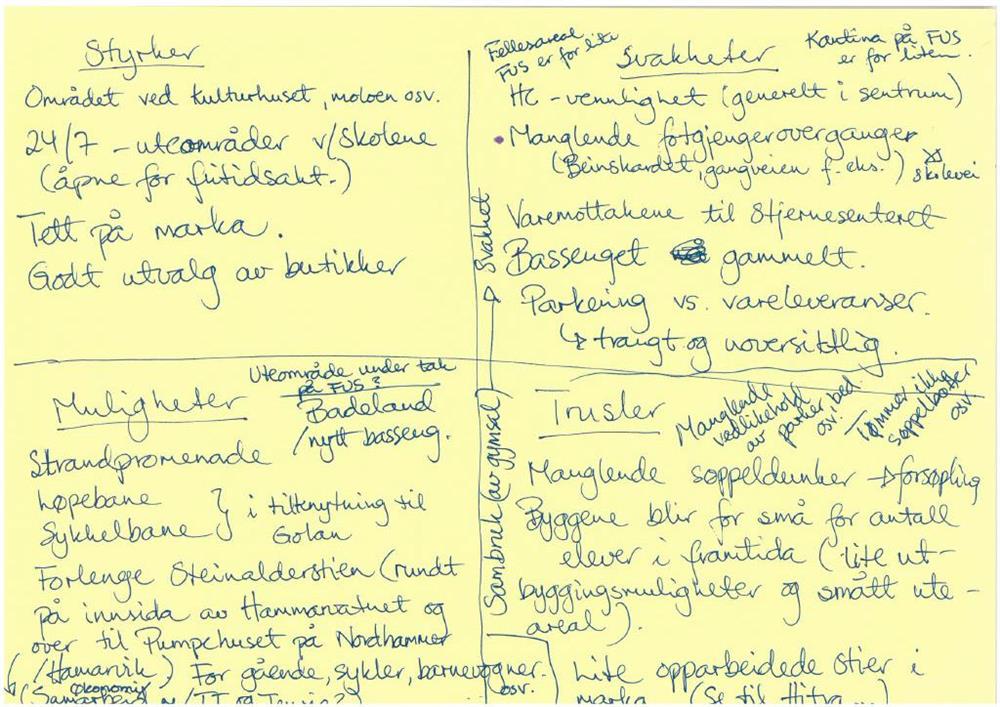 Styrker
Området ved kulturhuset, moloen osv.
24/7 - uteområder v/skolene
(åpne for fritidsakt.)
Tett på marka.
Godt utvalg av butikker
Fellesareal
FUS er for lita
Svakheter
Kantina på FUS
er for liten.
HC - vennlighet (generelt i sentrum)
• Manglende fotgjengeroverganger
(Beinskardet, gangveien f. eks.)
skolevei
Varemottakene til Stjernesenteret
Bassenget gammelt.
Parkering vs. vareleveranser.
↳ trangt og uoversiktlig.
Sambruk (av gymsal) → Svakhet
Muligheter
Uteområde under tak
på FUS?
Badeland
/nytt basseng.
Strandpromenade
Løpebane
Sykkelbane } i tilknytning til
Golan
Forlenge Steinalderstien (rundt
på innsida av Hammarvatnet og
over til Pumpehuset på Nordhammer
/Hamarvik) For gående, sykler, barnevogner.
osv.
økonomisk
(Samarbeid m/TT og
Trusler
Manglende
vedlikehold
av parker, bed
osv.
Tømmer ikke
søppelbøtter
osv.
Manglende søppeldunker → forsøpling
Byggene blir for små for antall
elever i framtida (lite ut-
byggingsmuligheter og smått ute-
areal).
Lite opparbeidede stier i
marka (Se til Hitra...)